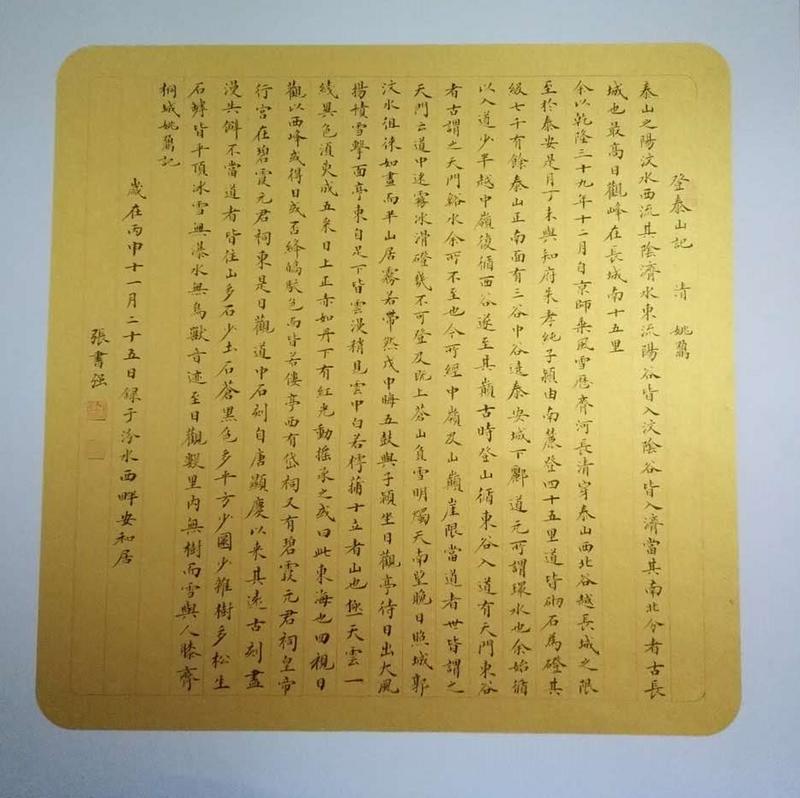 登泰山記 清 姚鼐
泰山之陽汶水西流其陰濟水東流陽谷皆入汶陰谷皆入濟當其南北分者古長
城也最高日觀峰在長城南十五里
余以乾隆三十九年十二月自京師乘風雪歷齊河長清穿泰山西北谷越長城之限
至於泰安是月丁未與知府朱孝純子潁由南麓登四十五里道皆砌石為磴其
級七千有餘泰山正南面有三谷中谷遶泰安城下酈道元所謂環水也余始循
以入道少半越中嶺復循西谷遂至其巔古時登山循東谷入道有天門東谷
者古謂之天門谿水余所不至也今所經中嶺及山巔崖限當道者世皆謂之
天門云道中迷霧冰滑磴幾不可登及既上蒼山負雪明燭天南望晚日照城郭
汶水徂徠如畫而半山居霧若帶然戊申晦五鼓與子潁坐日觀亭待日出大風
揚積雪擊面亭東自足下皆雲漫稍見雲中白若樗蒱十立者山也極天雲一
綫異色須臾成五采日上正赤如丹下有紅光動搖承之或曰此東海也回視日
觀以西峰或得日或否絳皜駁色而皆若僂亭西有岱祠又有碧霞元君祠皇帝
行宮在碧霞元君祠東是日觀道中石刻自唐顯慶以來其遠古刻盡
漫失僻不當道者皆往山多石少土石蒼黑色多平方少圜少雜樹多松生
石罅皆平頂冰雪無瀑水無鳥獸音迹至日觀數里內無樹而雪與人膝齊
桐城姚鼐記
歲在丙申十一月二十五日録于汾水西畔安和居
張書强